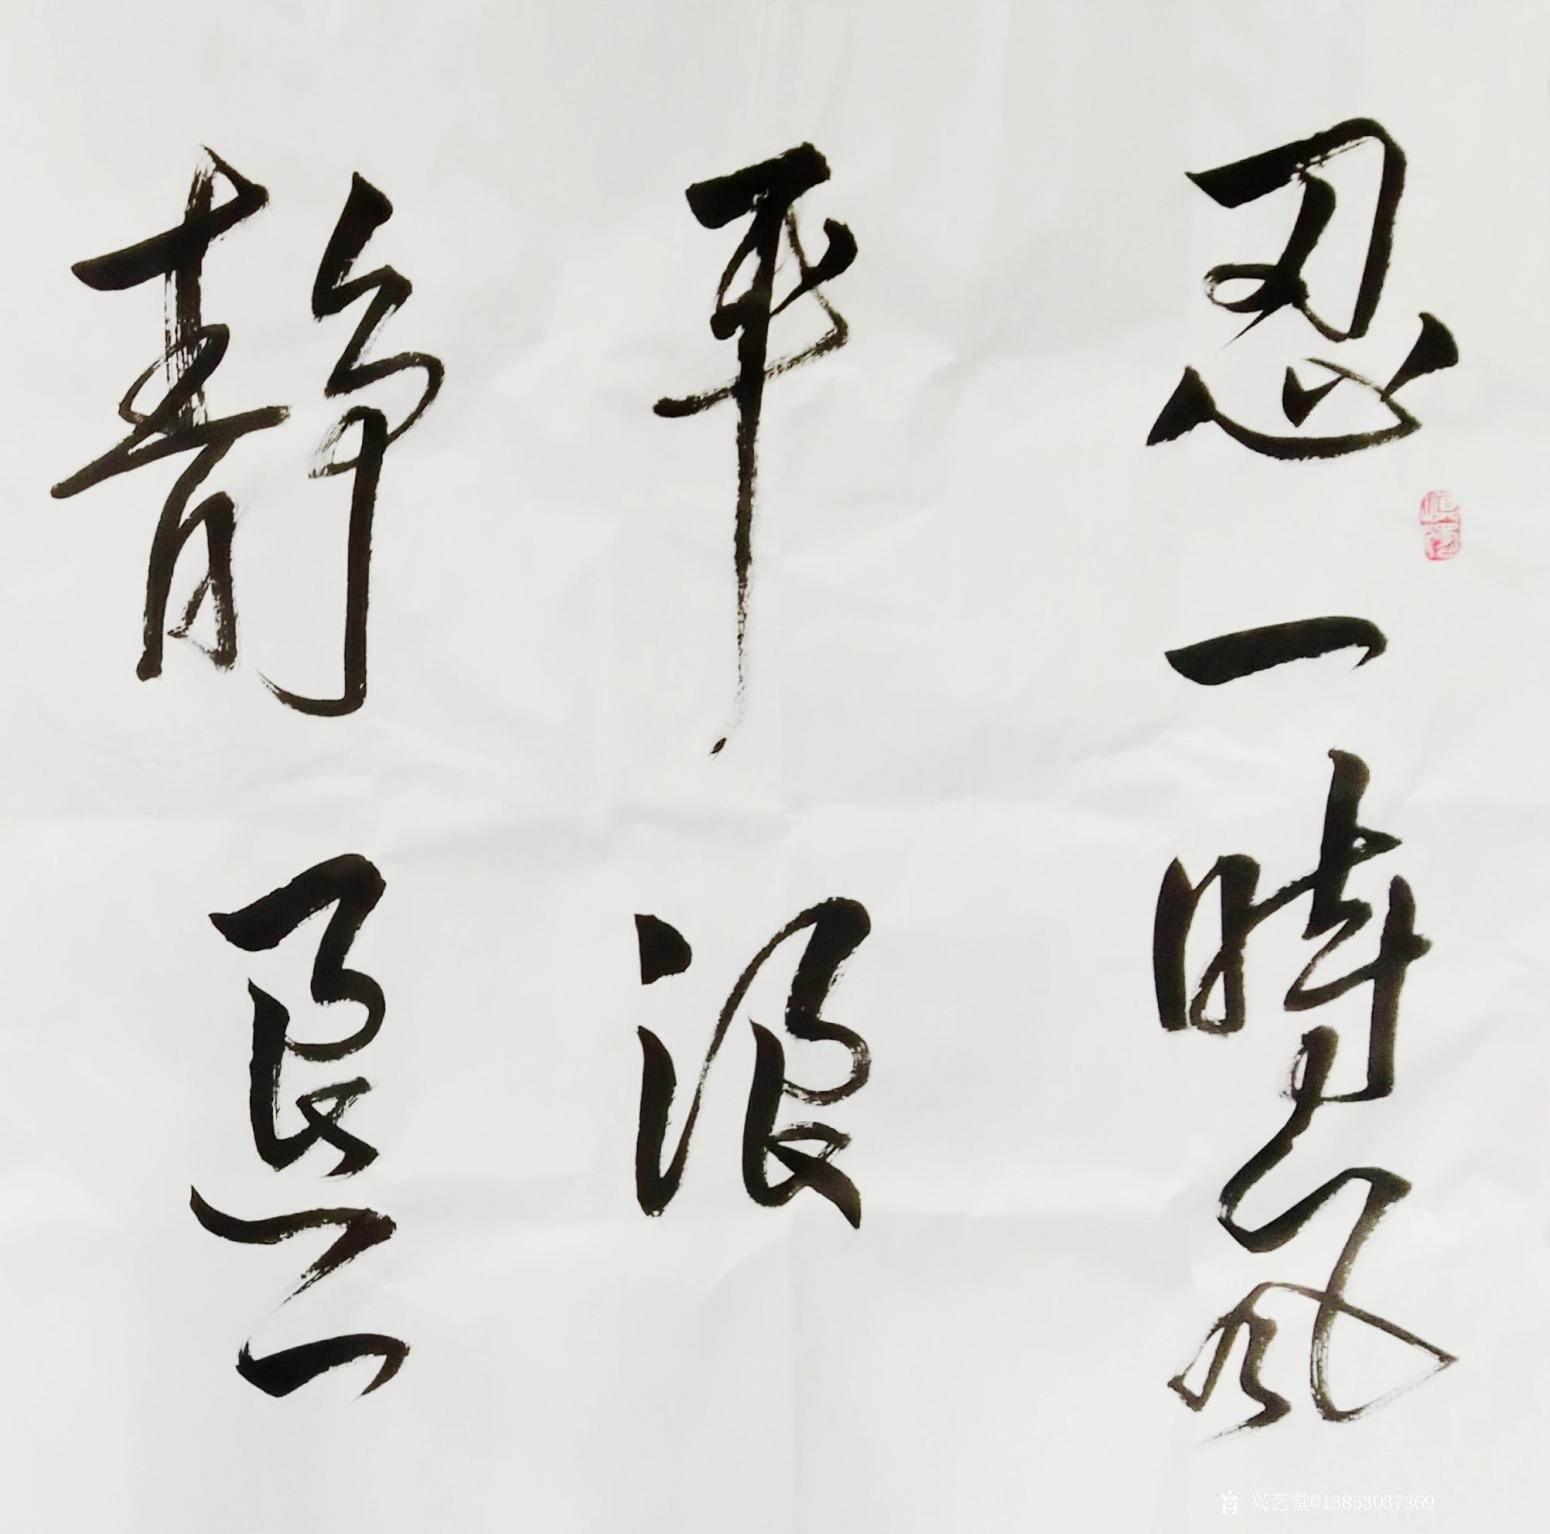 忍一時風
平浪
静退一
兴艺堂@13853037369